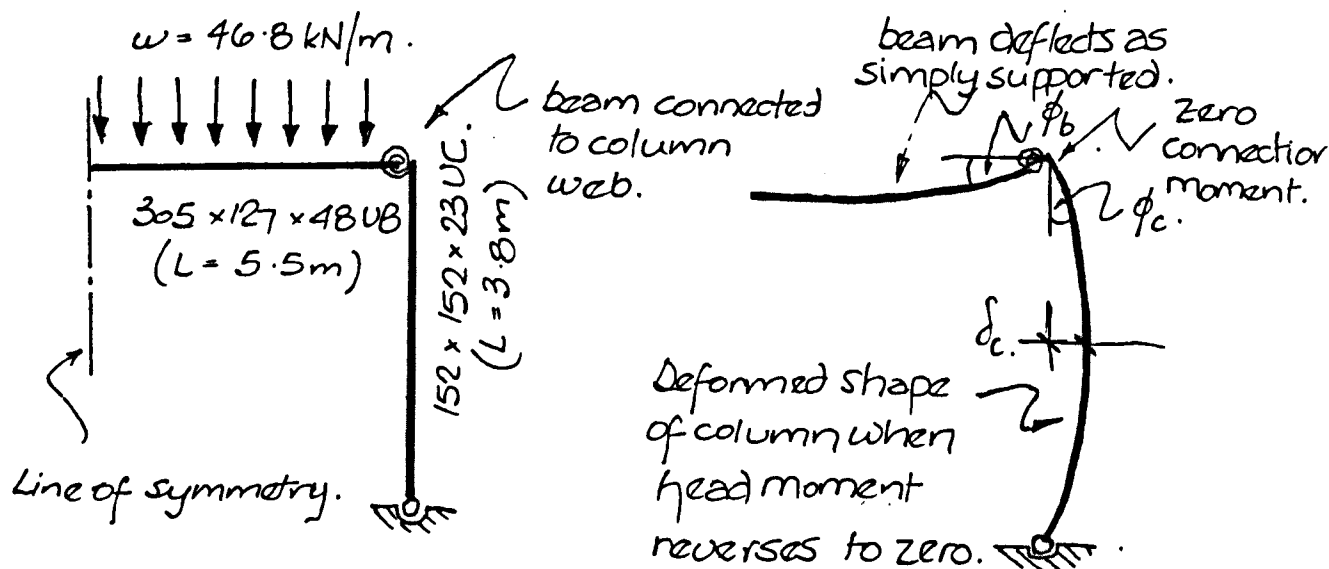 w = 46.8 kN/m.
beam connected
to column
web.
305 × 127 × 48 UB
(L = 5.5m)
152 × 152 × 23 UC.
(L = 3.8m)
Line of symmetry.
beam deflects as
simply supported.
ϕb
zero
connection
moment.
ϕc.
δc.
Deformed shape
of column when
head moment
reverses to zero.